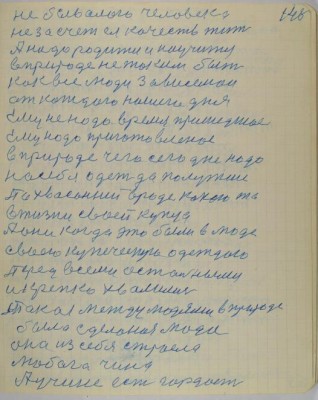 148
не бывалого человека
не за счет ся качеств тит
А надо родити и научити
в природе не таким быт
как все люди зависемаи
от каждого нашего дня
ему не надо время пришедшое
ему надо приготовленое
в природе чего сегодне надо
на себя одет да получше
похвасанний вроде какою та
в жизни своей купца
А они когда это были в моде
своею купеческую одеждаю
перед всеми осталными
и крепко хвалилис
Такая между людями в природе
была сделаная мода
она из себя строела
любога чина
Лучшие ест гордост